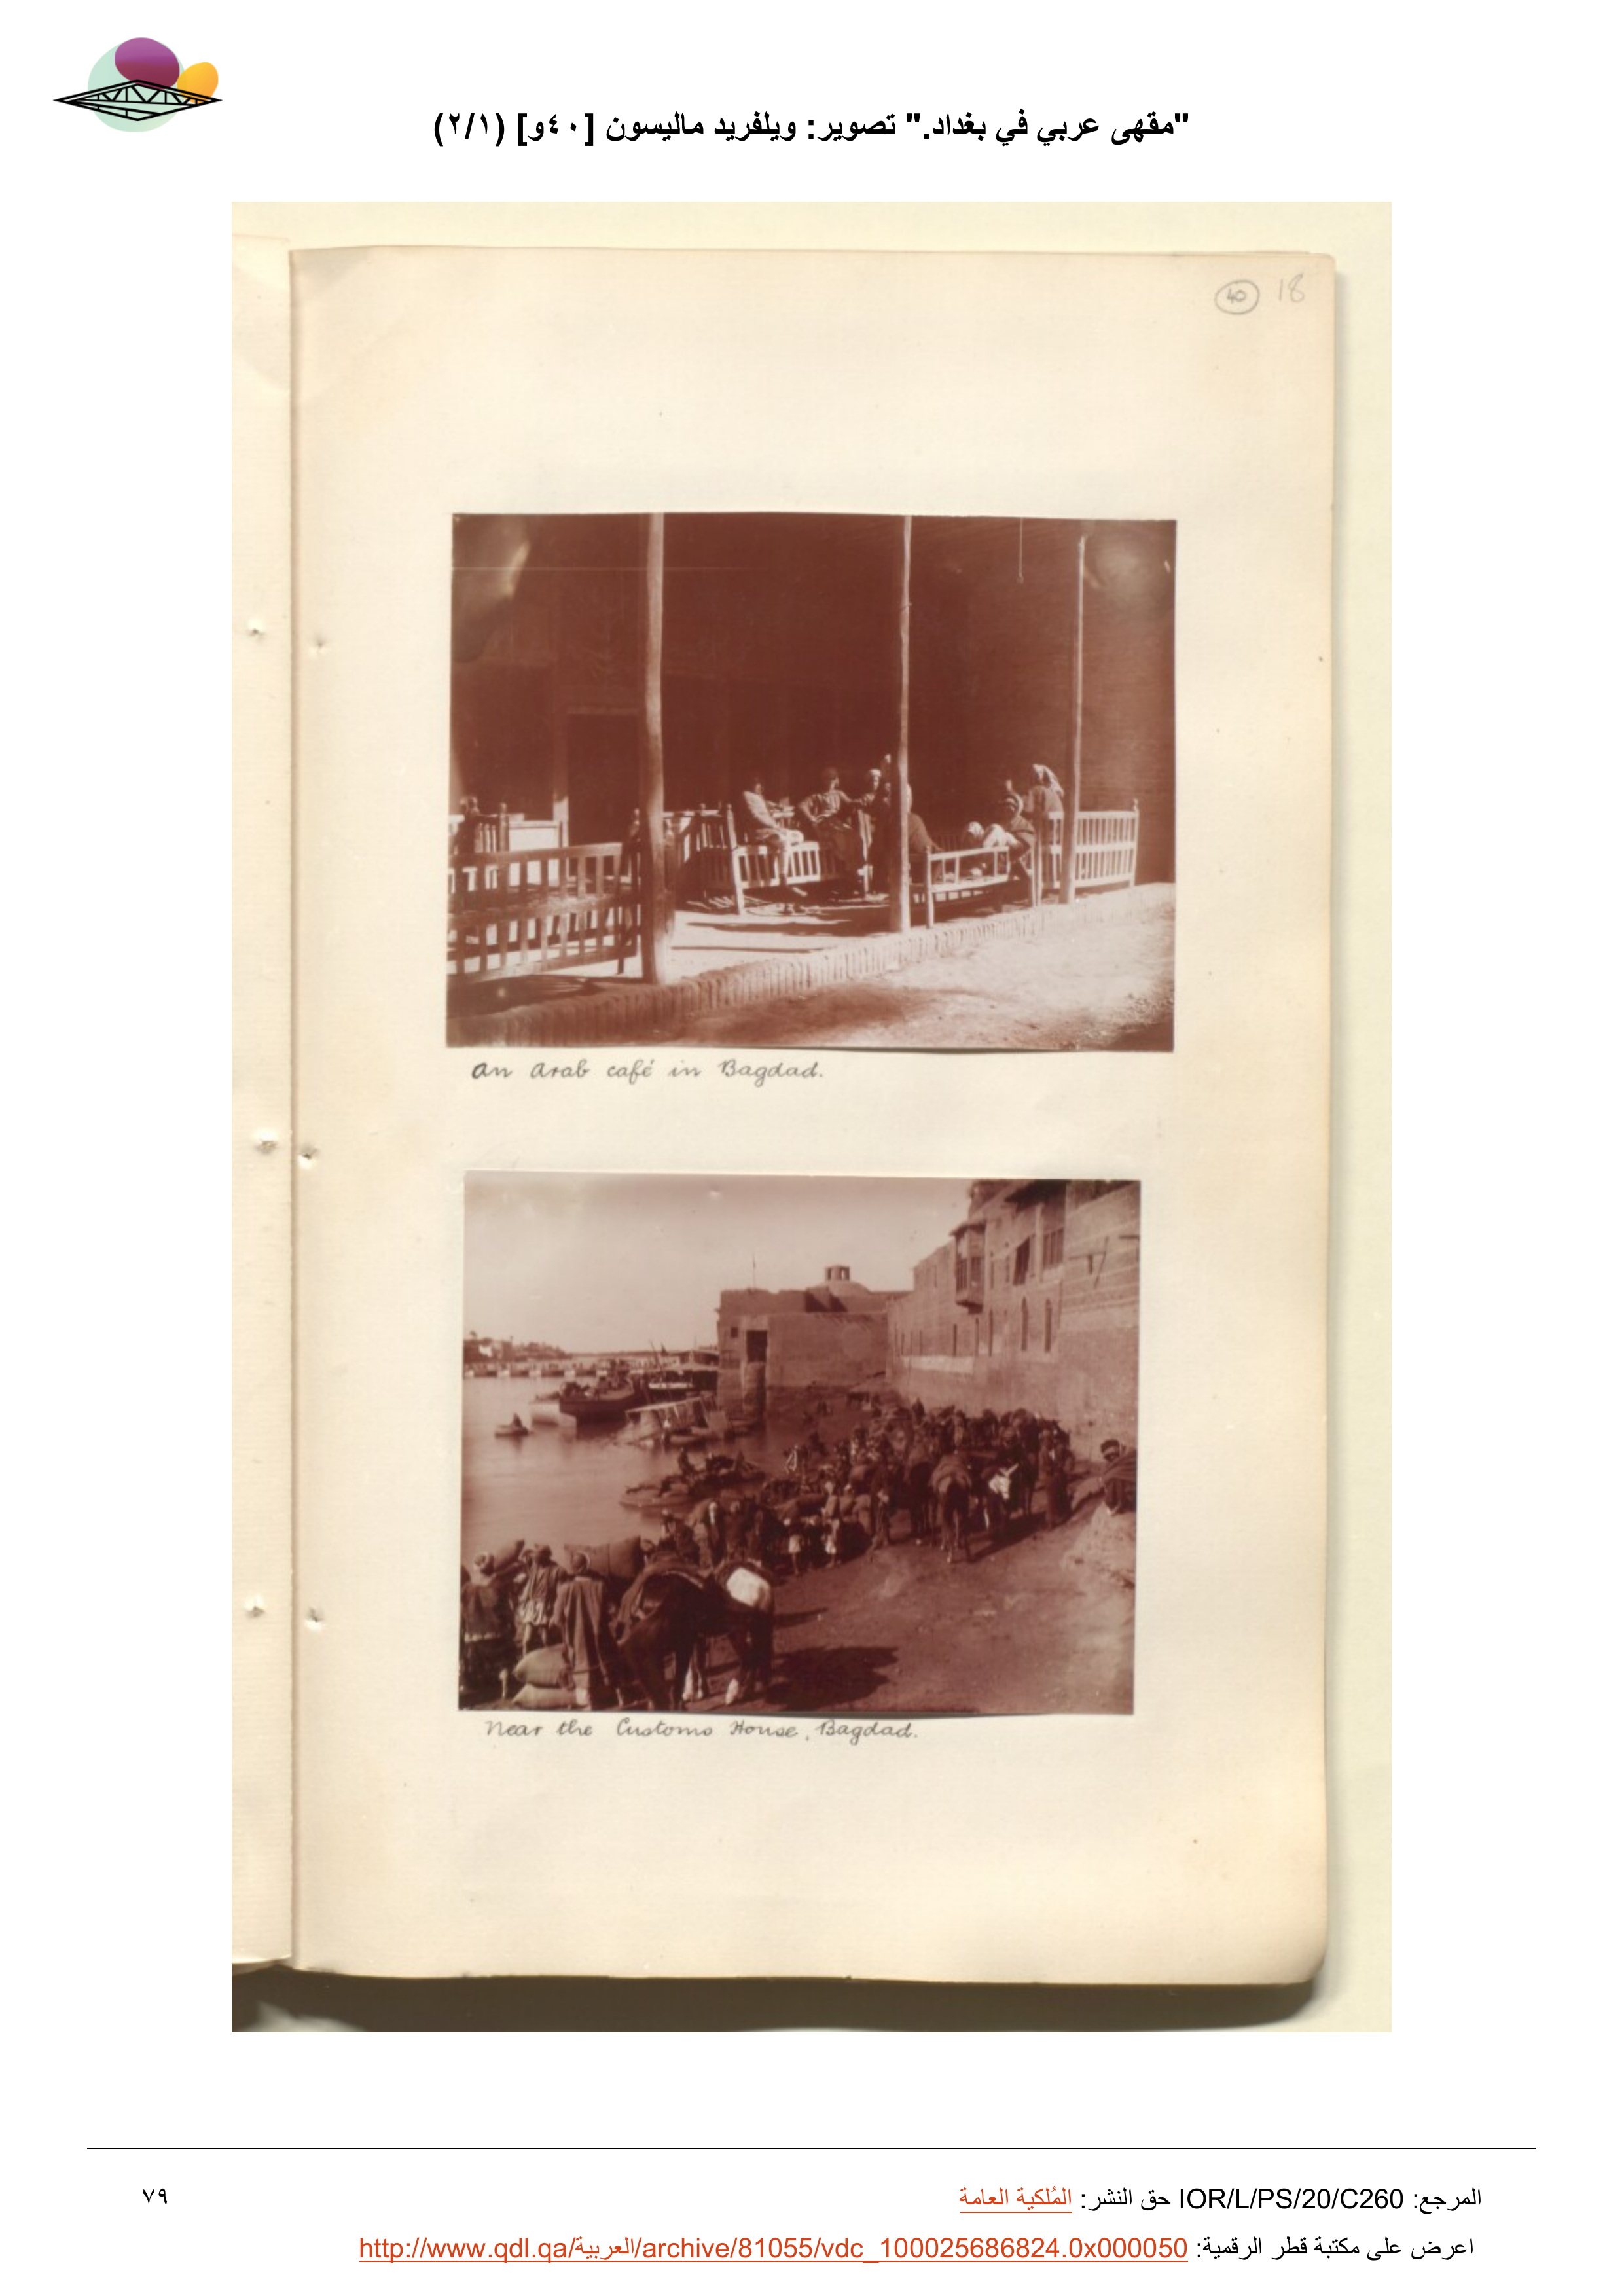 "مقهى عربي في بغداد." تصوير: ويلفريد ماليسون [٤٠و] (٢/١)
40 18
An Arab café in Bagdad.
Near the Customs House, Bagdad.
المرجع: IOR/L/PS/20/C260 حق النشر: المُلكية العامة
٧٩
اعرض على مكتبة قطر الرقمية: http://www.qdl.qa/العربية/archive/81055/vdc_100025686824.0x000050